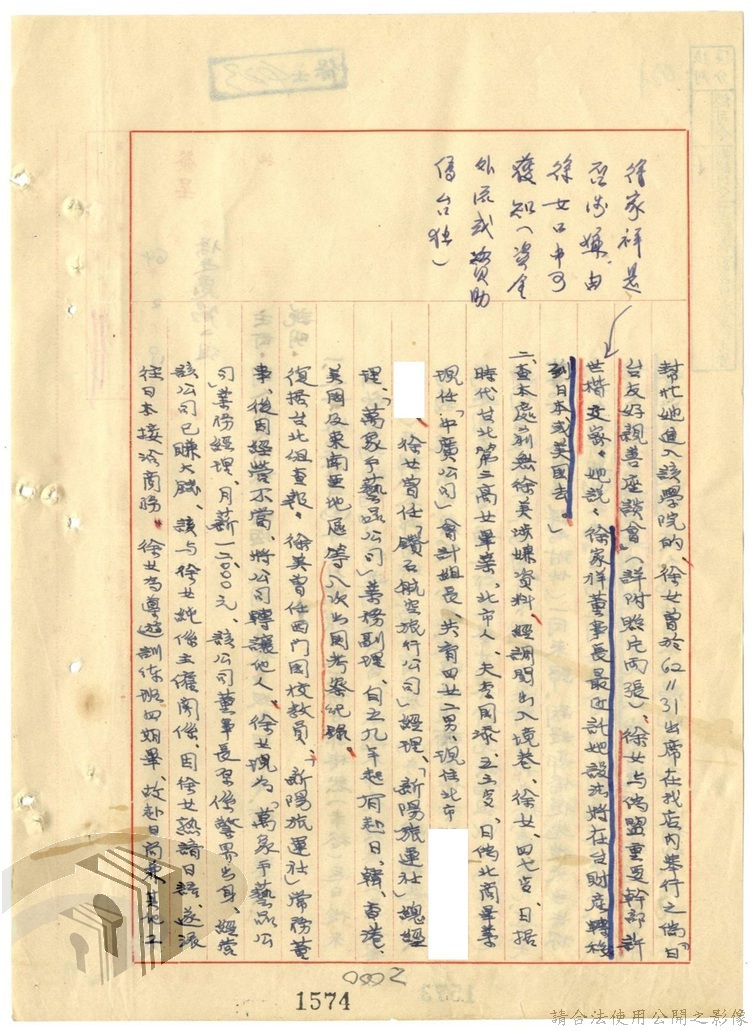 徐家祥是
否涉嫌，由
徐女口中可
發知（資金
外流或資助
偽台独）
幫忙她進入該學院的、徐女曾於62 11 31出席在我店內舉行之偽「日
台友好親善座談會」（詳附照片兩張）、徐女與偽盟重要幹部許
世楷交密。她說：徐家祥董事長最近託她設法將在台財產轉移
到日本或美國去。」
二、查本處前無徐英涉嫌資料、經調閱出入境卷、徐女、四七歲、日据
時代台北第三高女畢業、北市人、夫李周添、五三歲、日偽北商畢業
現任「中廣公司」會計組長、共育四女二男、現住北市
徐女曾任「鑽石航空旅行公司」經理、「新陽旅運社」總經
理、「萬象手藝品公司」業務副理、自五九年起有赴日、韓、香港、
美國及東南亞地區等八次出國考察紀錄。
復据台北組查報：徐英曾任西門國校教員、「新陽旅運社」常務董
事、後因經營不當、將公司轉讓他人。徐女現為「萬象手藝品公
司」業務經理、月薪一二、000元、該公司董事長梁係警界出身、經營
該公司已賺大錢、該與徐女純係主僱關係、因徐女熟諳日語、遂派
往日本接洽商務。徐女為導遊訓練班四期畢、故赴日商兼其他工
0002
1574
請合法使用公開之影像